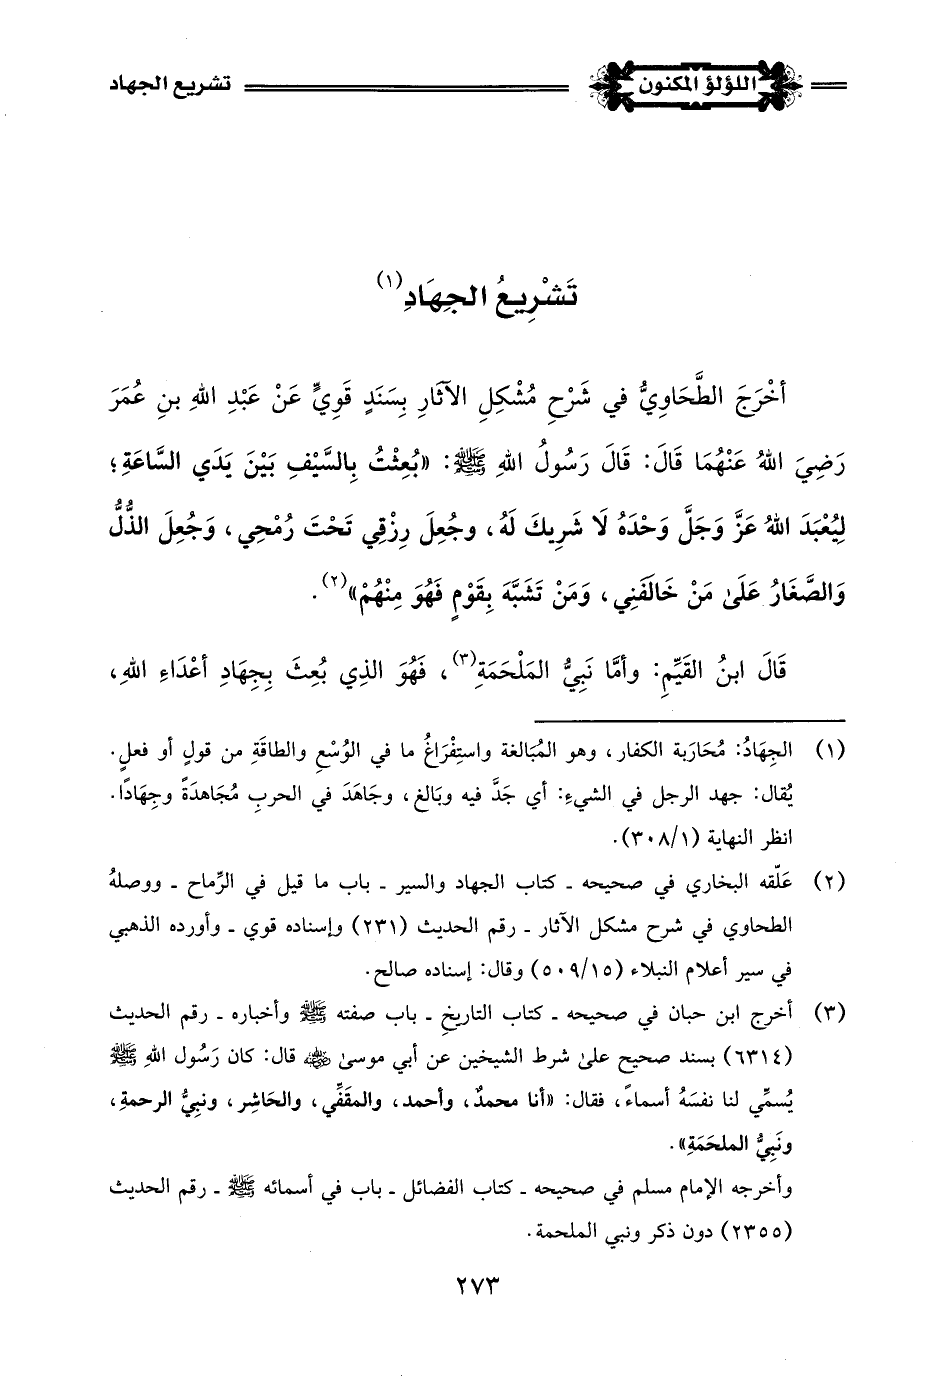 اللؤلؤ المكنون تشريع الجهاد
تَشْرِيعُ الجِهَادِ(١)
أخْرَجَ الطَّحَاوِيُّ في شَرْحِ مُشْكِلِ الآثَارِ بِسَنَدٍ قَوِيٍّ عَنْ عَبْدِ اللهِ بنِ عُمَرَ
رَضِيَ اللهُ عَنْهُمَا قَالَ: قَالَ رَسُولُ اللهِ ﷺ: «بُعِثْتُ بِالسَّيْفِ بَيْنَ يَدَي السَّاعَةِ؛
لِيُعْبَدَ اللهُ عَزَّ وَجَلَّ وَحْدَهُ لَا شَرِيكَ لَهُ، وجُعِلَ رِزْقِي تَحْتَ رُمْحِي، وَجُعِلَ الذُّلُّ
وَالصَّغَارُ عَلَىٰ مَنْ خَالَفَنِي، وَمَنْ تَشَبَّهَ بِقَوْمٍ فَهُوَ مِنْهُمْ»(٢).
قَالَ ابنُ القَيِّمِ: وأمَّا نَبِيُّ المَلْحَمَةِ(٣)، فَهُوَ الذِي بُعِثَ بِجِهَادِ أعْدَاءِ اللهِ،
(١) الجِهَادُ: مُحَارَبة الكفار، وهو المُبَالغة واستِفْرَاغُ ما في الوُسْعِ والطاقَةِ من قولٍ أو فعلٍ.
يُقال: جهد الرجل في الشيءِ: أي جَدَّ فيه وبَالغ، وجَاهَدَ في الحربِ مُجَاهدَةً وجِهَادًا.
انظر النهاية (٣٠٨/١).
(٢) عَلّقه البخاري في صحيحه ـ كتاب الجهاد والسير ـ باب ما قيل في الرِّماح ـ ووصلهُ
الطحاوي في شرح مشكل الآثار ـ رقم الحديث (٢٣١) وإسناده قوي ـ وأورده الذهبي
في سير أعلام النبلاء (٥٠٩/١٥) وقال: إسناده صالح.
(٣) أخرج ابن حبان في صحيحه ـ كتاب التاريخ ـ باب صفته ﷺ وأخباره ـ رقم الحديث
(٦٣١٤) بسند صحيح علىٰ شرط الشيخين عن أبي موسىٰ رضي الله عنه قال: كان رَسُول اللهِ ﷺ
يُسمِّي لنا نفسَهُ أسماءً، فقال: «أنا محمدٌ، وأحمد، والمقَفِّي، والحَاشِر، ونبيُّ الرحمةِ،
ونَبِيُّ الملحَمَةِ».
وأخرجه الإمام مسلم في صحيحه ـ كتاب الفضائل ـ باب في أسمائه ﷺ ـ رقم الحديث
(٢٣٥٥) دون ذكر ونبي الملحمة.
٢٧٣